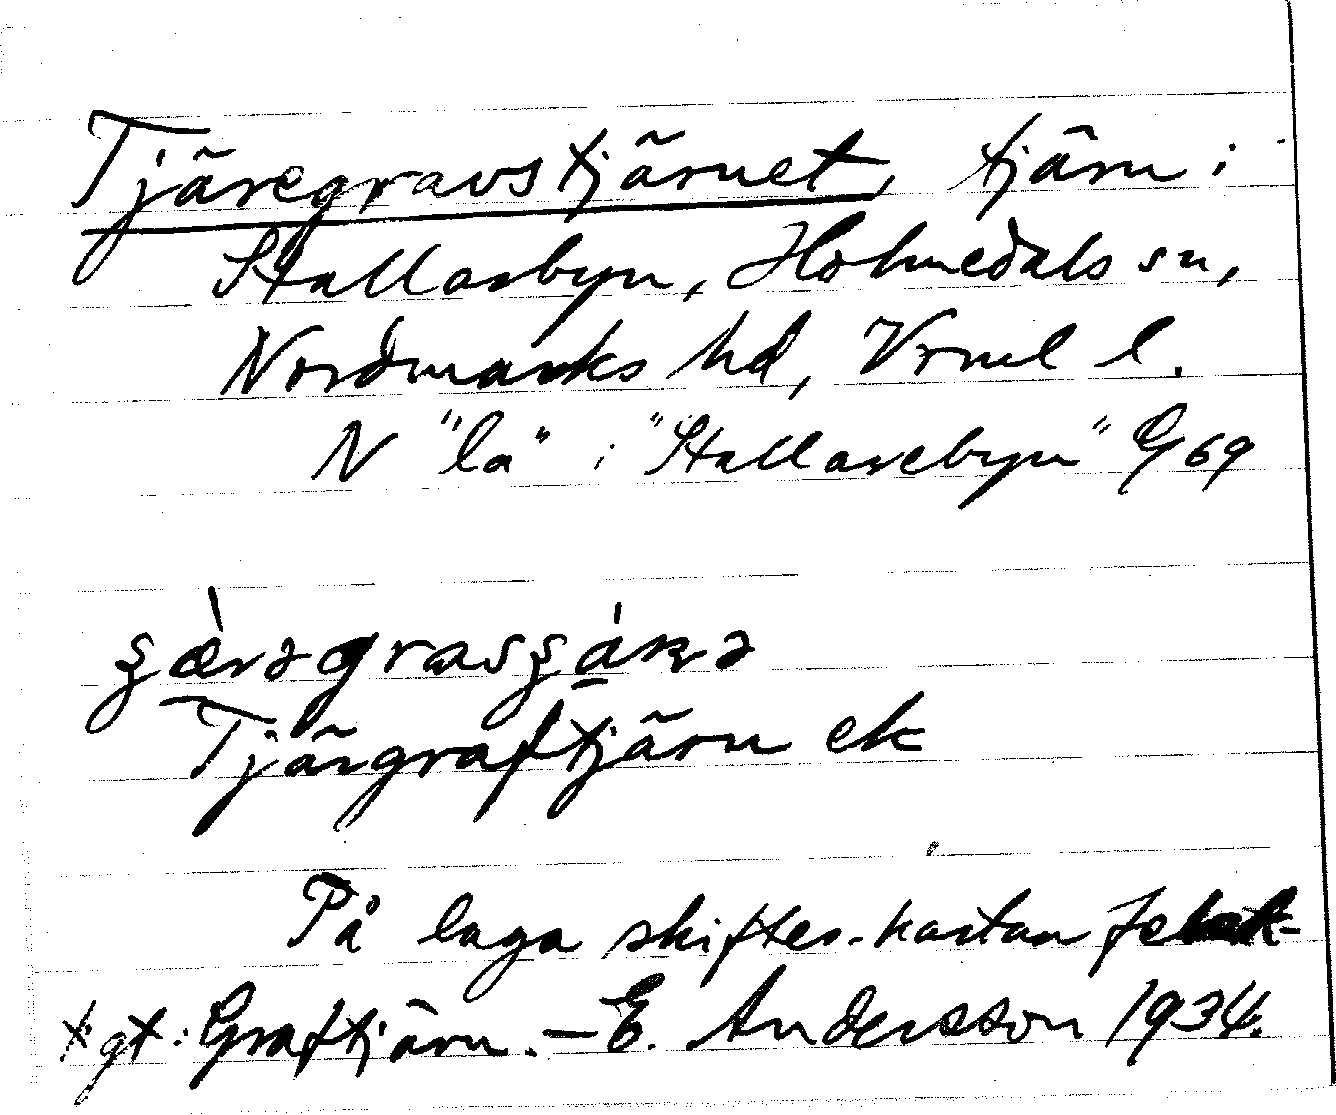 Tjäregravstjärnet, tjärn i
Stallarbyn, Holmedals sn,
Nordmarks hd, Vrml l.
N "la" i "Stallarebyn" G 69
Tjärgraftjärn ek
På laga skifteskartan felak-
tigt: Graftjärn. – E. Andersson 1934.